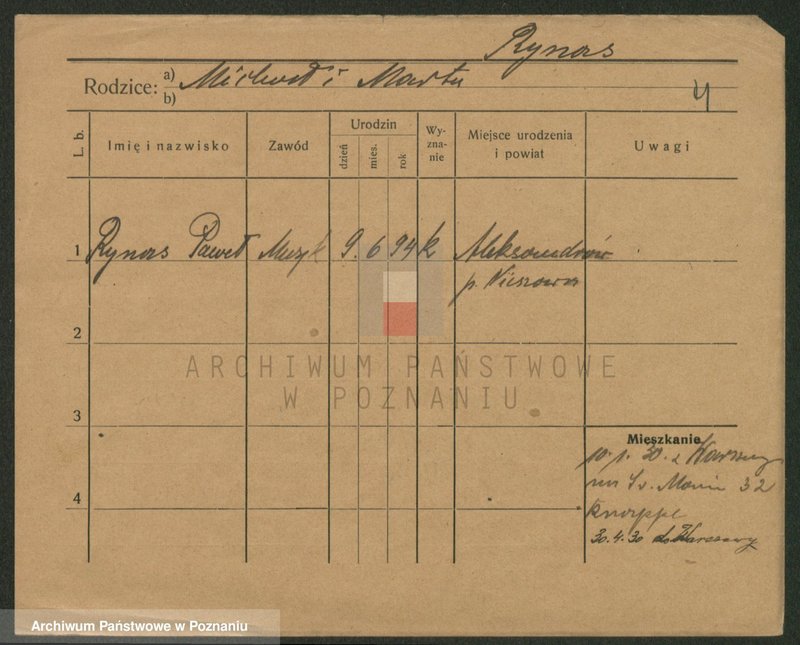 Rynas
Rodzice: a) Michał i Marta
b)
4
L. b.
Imię i nazwisko
Zawód
Urodzin
dzień
mies.
rok
Wy-
zna-
nie
Miejsce urodzenia
i powiat
Uwagi
1 Rynas Paweł Muzyk 9. 6 94 k Aleksandrów
p. Nieszawa
2
ARCHIWUM PAŃSTWOWE
W POZNANIU
3
Mieszkanie
10. 1. 30. z Warszawy
na Św. Marcin 32
4
30. 4. 30 do Warszawy
Archiwum Państwowe w Poznaniu